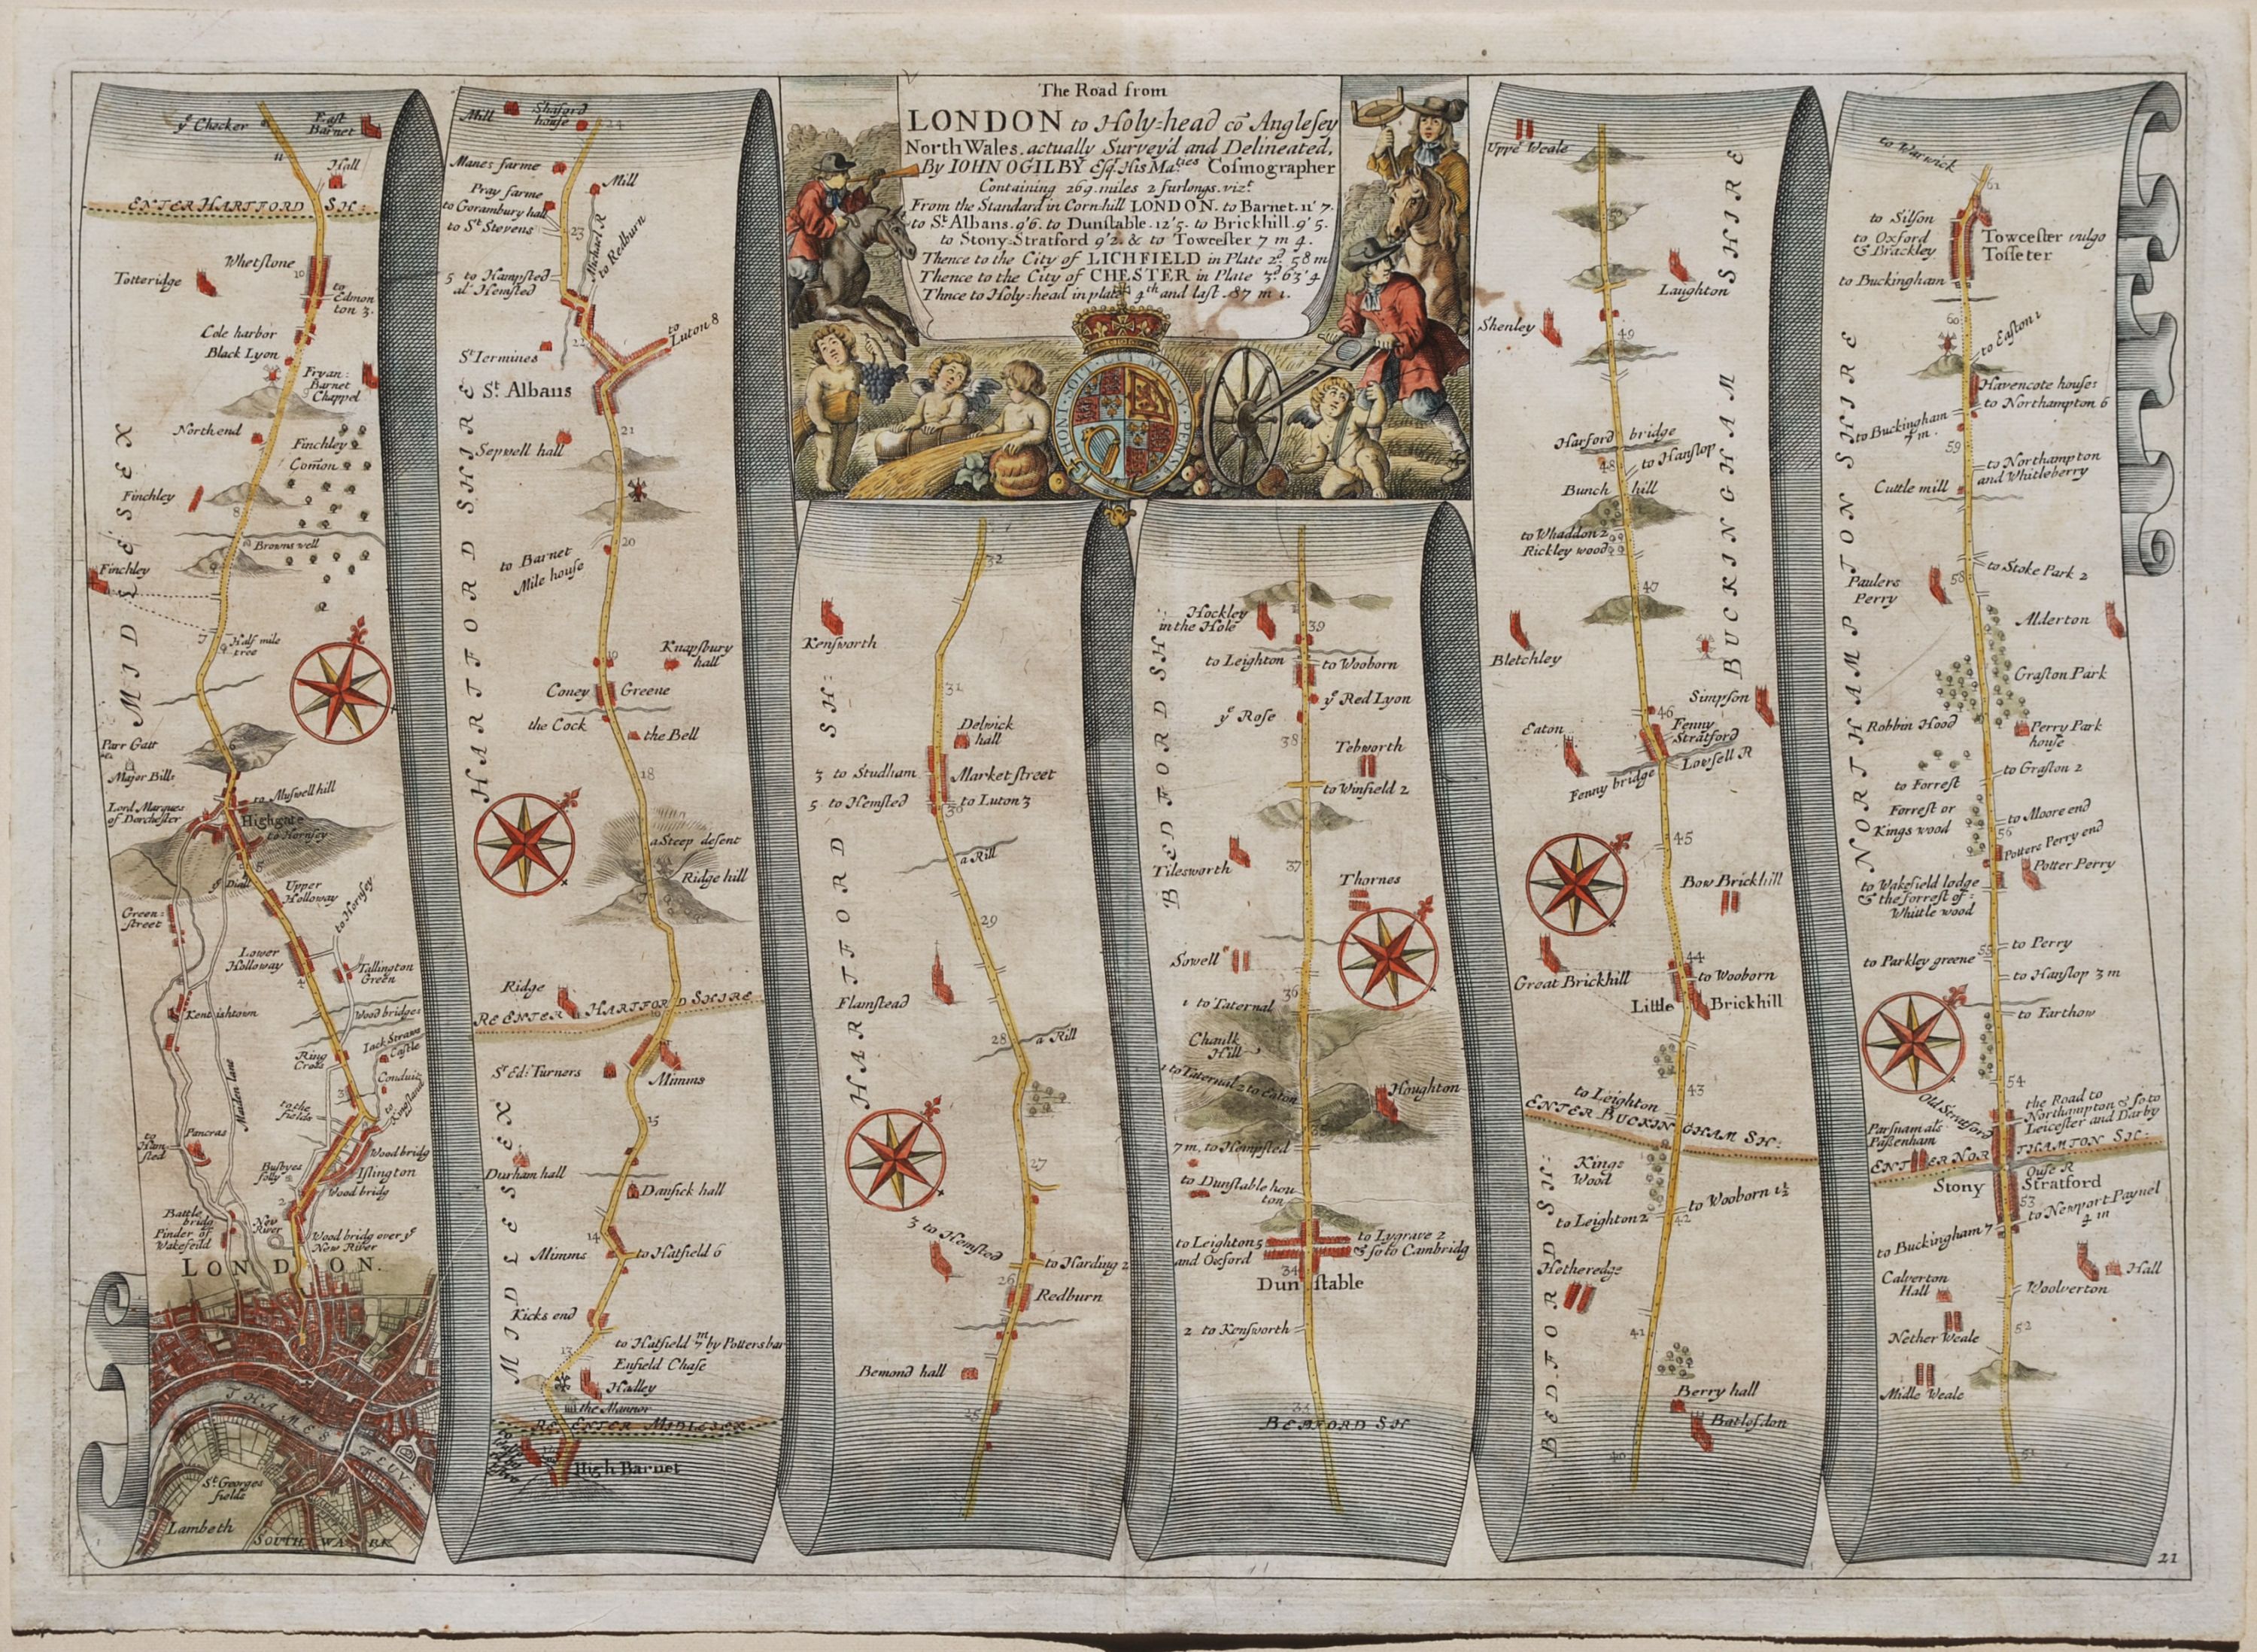 The Road from
LONDON to Holy=head cō Anglesey
North Wales. actually Survey'd and Delineated,
By IOHN OGILBY Esqr. His Ma:ties Cosmographer
Containing 269. miles 2 furlongs. vizt
From the Standard in Cornhill LONDON. to Barnet. 11' 7.
to St. Albans. 9'6. to Dunstable. 12'5. to Brickhill. 9'5.
to Stony=Stratford 9'2. & to Towcester 7 m 4.
Thence to the City of LICHFIELD in Plate 2d. 58 m
Thence to the City of CHESTER in Plate 3d. 63'4
Thnce to Holy=head in plate 4th and last. 87 m 1.
HONI·SOIT
MAL·Y·PENS
ye Checker
East Barnet
11
Hall
ENTER HARTFORD SH:
Whetstone
10
Totteridge
to Edmonton 3.
Cole harbor
Black Lyon
Fryan: Barnet Chappel
9
Northend
Finchley Comon
MIDLESEX
Finchley
8
Browns well
Finchley
7
Half mile tree
6
Parr Gatt
Major Bills
to Muswell hill
Lord Marques of Dorchester
Highgate
to Hornsey
5
ye Diall
Upper Holloway
Green=street
to Hornsey
Lower Holloway
Tallington Green
4
Kentishtown
Wood bridge
Iack Straws Castle
Ring Cross
Conduit
3
to the fields
to Kingsland
Maiden lane
to Hamsted
Pancras
Wood bridg
Busbyes folly
Islington
Wood bridg
2
Battle bridg
Pinder of Wakefeild
New River
Wood bridg over ye New River
LONDON.
THAMES FLUV:
St Georges fields
Lambeth
SOUTHWARK
Mill
Shaford house
24
Manes farme
Mill
Pray farme
to Gorambury hall
to St Stevens
23
Michael R
to Redburn
5 to Hampsted al: Hemsted
to Luton 8
22
St Iermines
St Albans
HARTFORD SHIRE
21
Sepwell hall
20
to Barnet
Mile house
19
Knapsbury hall
Coney Greene
the Cock
the Bell
18
a Steep desent
17
Ridge hill
Ridge
RE ENTER HARTFORD SHIRE
16
St Ed: Turners
Mimms
MIDLESEX
15
Durham hall
Dansick hall
14
Mimms
to Hatfield 6
Kicks end
to Hatfield 7 m by Pottersbar
13
Enfield Chase
Hadley
the Mannor
RE ENTER MIDLESEX
High Barnet
32
Kensworth
31
Delwick hall
3 to Studham
Market street
5 to Hemsted
to Luton 3
30
a Rill
HARTFORD SH:
29
Flamstead
28
a Rill
27
3 to Hemsted
to Harding 2
26
Redburn
Bemond hall
25
Hockley in the Hole
39
to Leighton
to Wooborn
ye Red Lyon
ye Rose
38
Tebworth
to Winfield 2
BEDFORD SH:
37
Tilesworth
Thornes
Sowell
36
1 to Taternal
Chaulk Hill
1 to Taternal 2 to Eaton
Houghton
35
7 m. to Hempsted
to Dunstable houton
to Leighton 5 and Oxford
to Lygrave 2 & so to Cambridg
34
Dunstable
2 to Kensworth
33
BEDFORD SH
Upper Weale
50
Laughton
Shenley
49
Harford bridge
48
to Hanslop
Bunch hill
to Whaddon 2
Rickley wood
47
BUCKINGHAM SHIRE
Bletchley
Simpson
46
Fenny Stratford
Eaton
Fenny bridge
Lowsell R
45
Bow Brickhill
44
Great Brickhill
to Wooborn
Little Brickhill
43
to Leighton
ENTER BUCKINGHAM SH:
Kings Wood
to Wooborn 1½
to Leighton 2
42
BEDFORD SH:
Hetheredge
41
Berry hall
Batlesdon
40
to Warwick
61
to Silson
to Oxford & Brackley
Towcester vulgo Tosseter
to Buckingham
60
to Easton 1
Havencote houses
to Northampton 6
to Buckingham 7 m.
59
to Northampton and Whitleberry
Cuttle mill
to Stoke Park 2
58
Paulers Perry
Alderton
Grafton Park
NORTHAMPTON SHIRE
Robbin Hood
Perry Park house
to Grafton 2
to Forrest
Forrest or Kings wood
to Moore end
56
Potters Perry end
Potter Perry
to Wakefield lodge & the forrest of Whittle wood
55
to Perry
to Parkley greene
to Hanslop 3 m
to Farthow
54
Old Stratford
the Road to Northampton & so to Leicester and Darby
Parsnam als Passenham
ENTER NORTHAMTON SH:
Ouse R
Stony Stratford
53
to Newport Paynel 4 m
to Buckingham 7
Calverton Hall
Hall
Woolverton
52
Nether Weale
Midle Weale
51
21